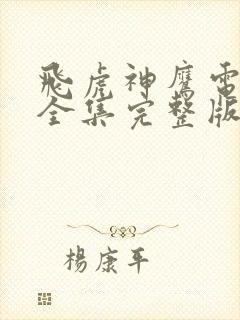 飛虎神鷹電
全集完整版
楊康年